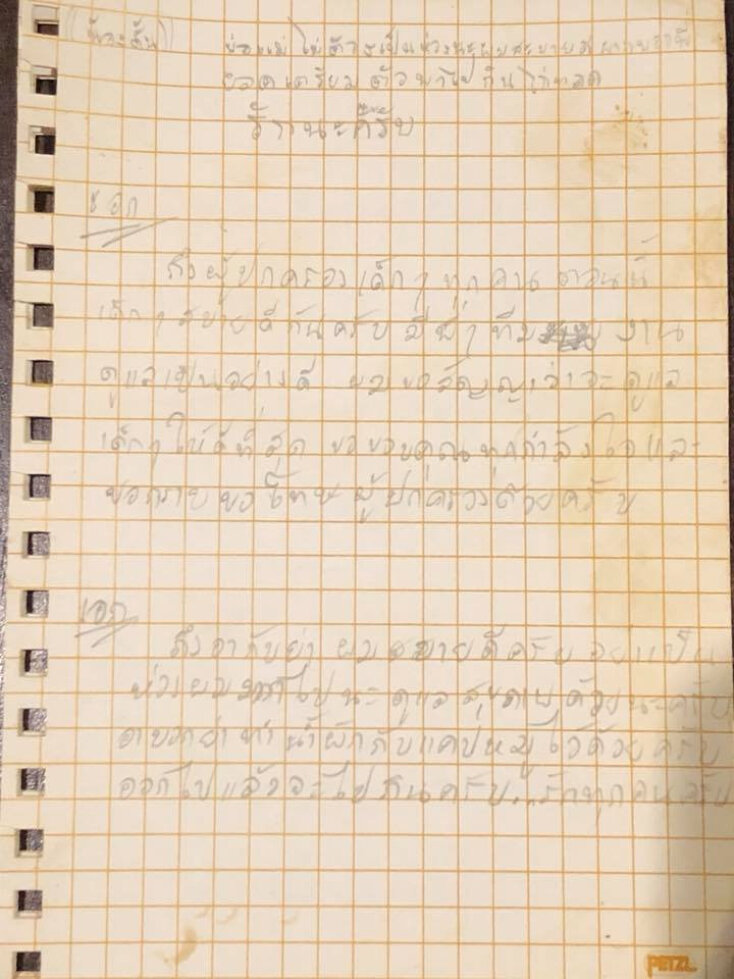 ((น้องตั้น)) พ่อแม่ ไม่ต้องเป็นห่วงนะผมสบายดี
ยอดเตรียมตัวพาไปกินไก่ทอด
รักนะครับ
จ.เอก
ถึงผู้ปกครองเด็กๆ ทุกคน ตอนนี้
เด็กๆ สบายดีกันครับ มีพี่ๆ ทีม งาน
ดูแลเป็นอย่างดี ผมขอสัญญาว่าจะดูแล
เด็กๆ ให้ดีที่สุด ขอขอบคุณทุกกำลังใจและ
ขอกราบขอโทษผู้ปกครองด้วยครับ
เอก
ถึงอากับย่า ผมสบายดีครับ อย่าเป็น
ห่วงผมมากไปนะ ดูแลสุขภาพด้วยนะครับ
ย่าทำน้ำผักกับแคปหมูไว้ด้วยครับ
ออกไปแล้วจะไปกินครับ..รักทุกคนครับ
PETZL